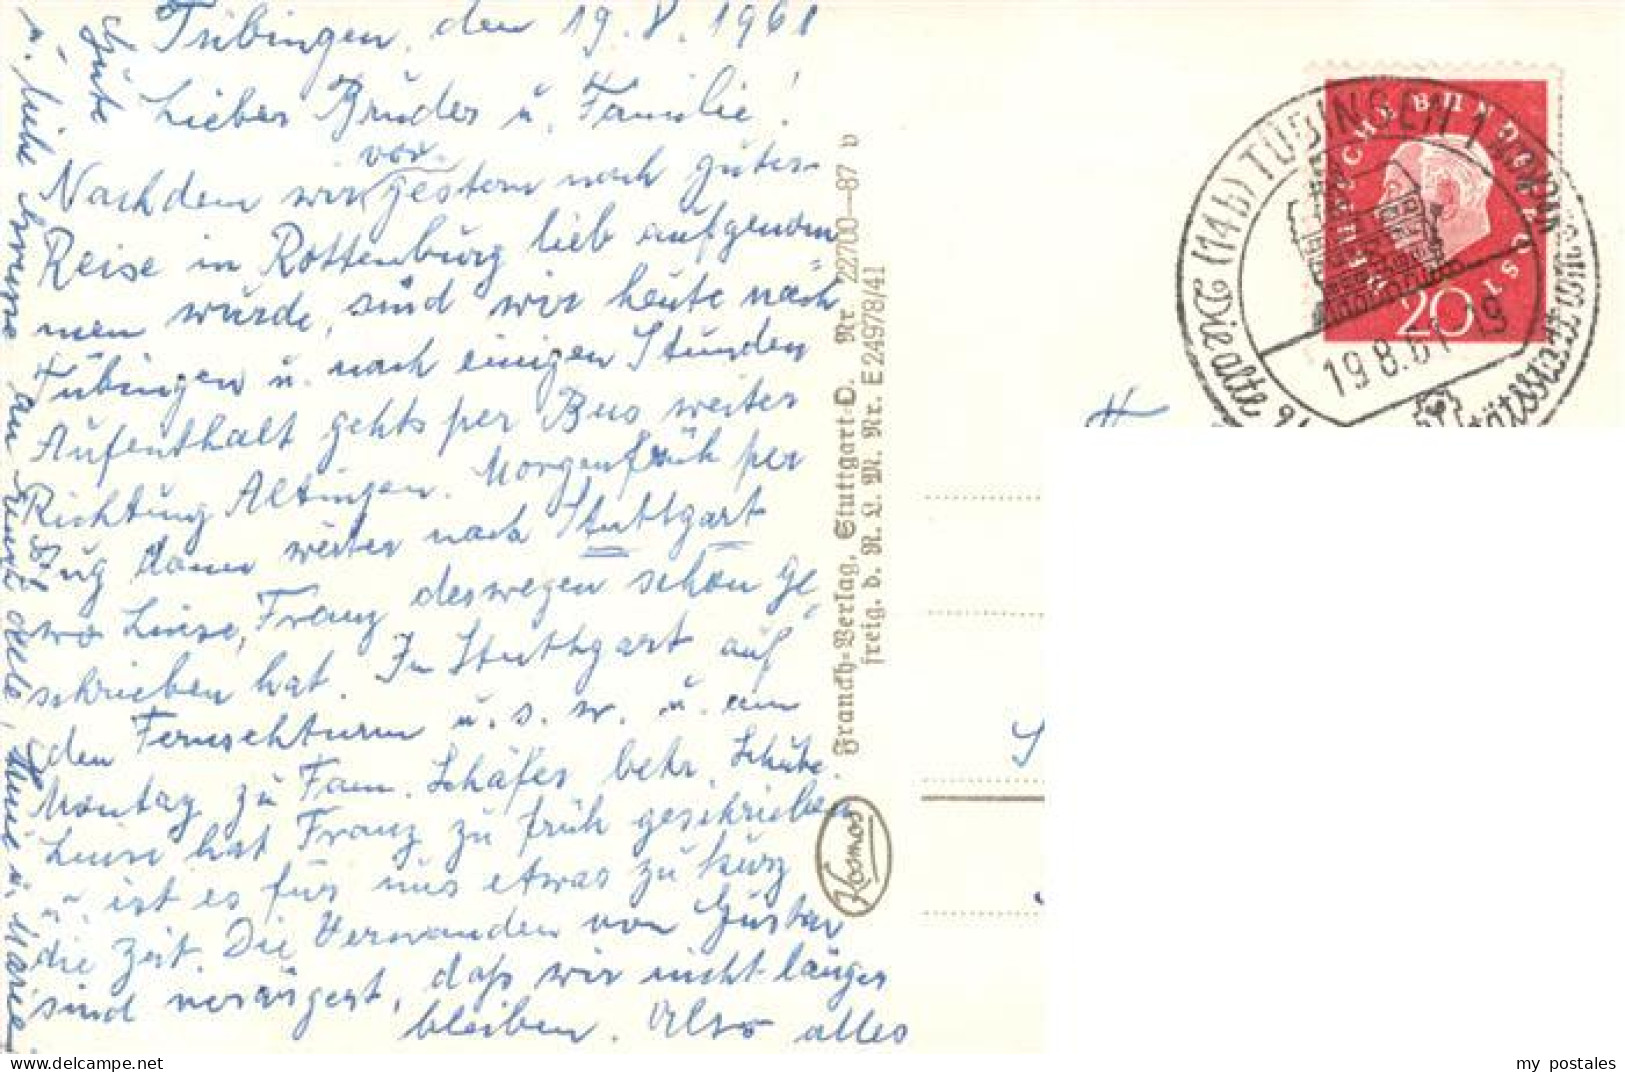 Tübingen, den 19.8.1961
Lieber Bruder u. Familie!
Nachdem wir vorgestern nach guter
Reise in Rottenburg lieb aufgenom=
men wurde, sind wir heute nach
Tübingen u. nach einigen Stunden
Aufenthalt gehts per Bus weiter
Richtung Altingen. Morgenfrüh per
Zug dann weiter nach Stuttgart
wo Luise, Franz deswegen schon ge=
schrieben hat. In Stuttgart auf
den Fernsehturm u.s.w. u. am
Montag zu Fam. Schäfer betr. Schübe.
Luise hat Franz zu früh geschrieben
u. ist es für uns etwas zu kurz
die Zeit. Die Verwanden von Gustav
sind verärgert, daß wir nicht länger
bleiben. Also alles
Gute
u. liebe Grüsse an Euch alle, u. Marie.
Franckh=Verlag, Stuttgart=O. Nr. 22700—87 v
freig. d. R. L. M. Nr. E 24978/41
Kosmos
DEUTSCHE BUNDESPOST
20
(14b) TÜBINGEN 1
Die alte
19.8.61-19
my postales